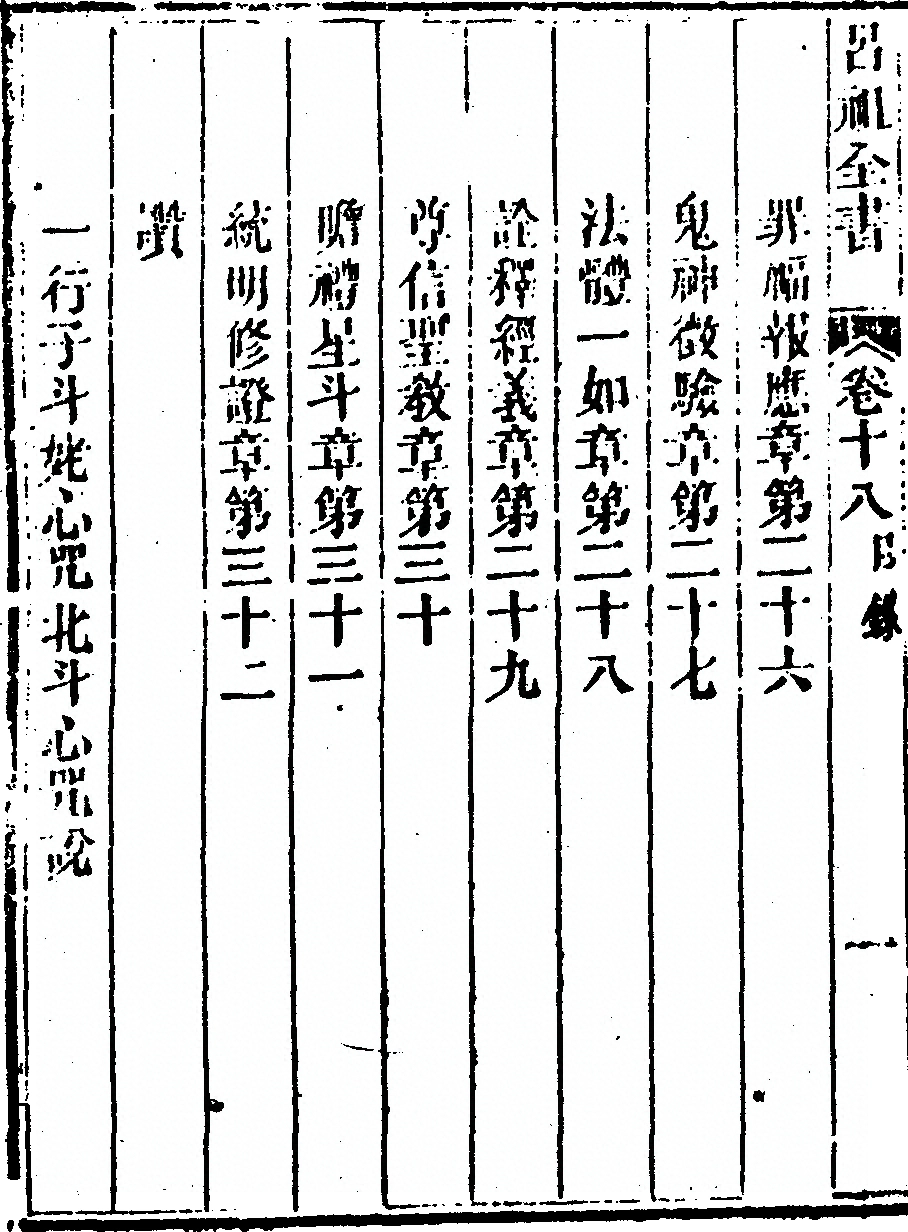 呂祖全書 卷十八目錄 一
罪福報應章第二十六
鬼神徵驗章第二十七
法體一如章第二十八
詮釋經義章第二十九
尊信聖教章第三十
瞻禮星斗章第三十一
統明修證章第三十二
讚
一行子斗姥心咒北斗心咒說